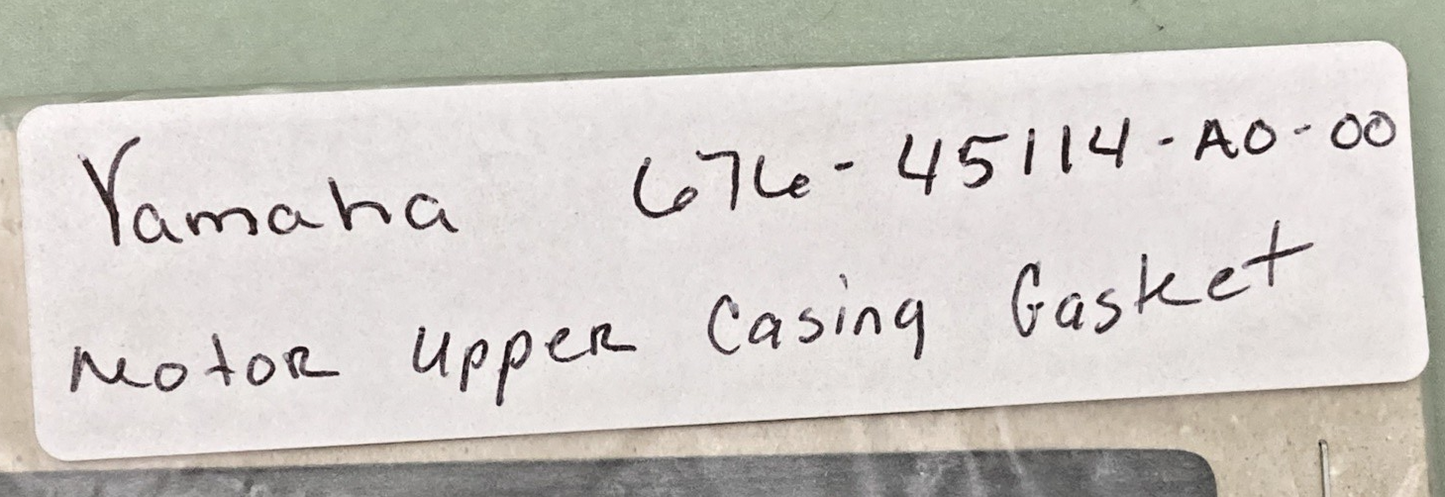 Yamaha 676-45114-A0-00
Motor Upper Casing Gasket